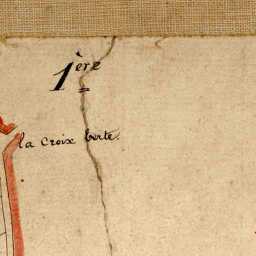 1ère
la Croix berte.